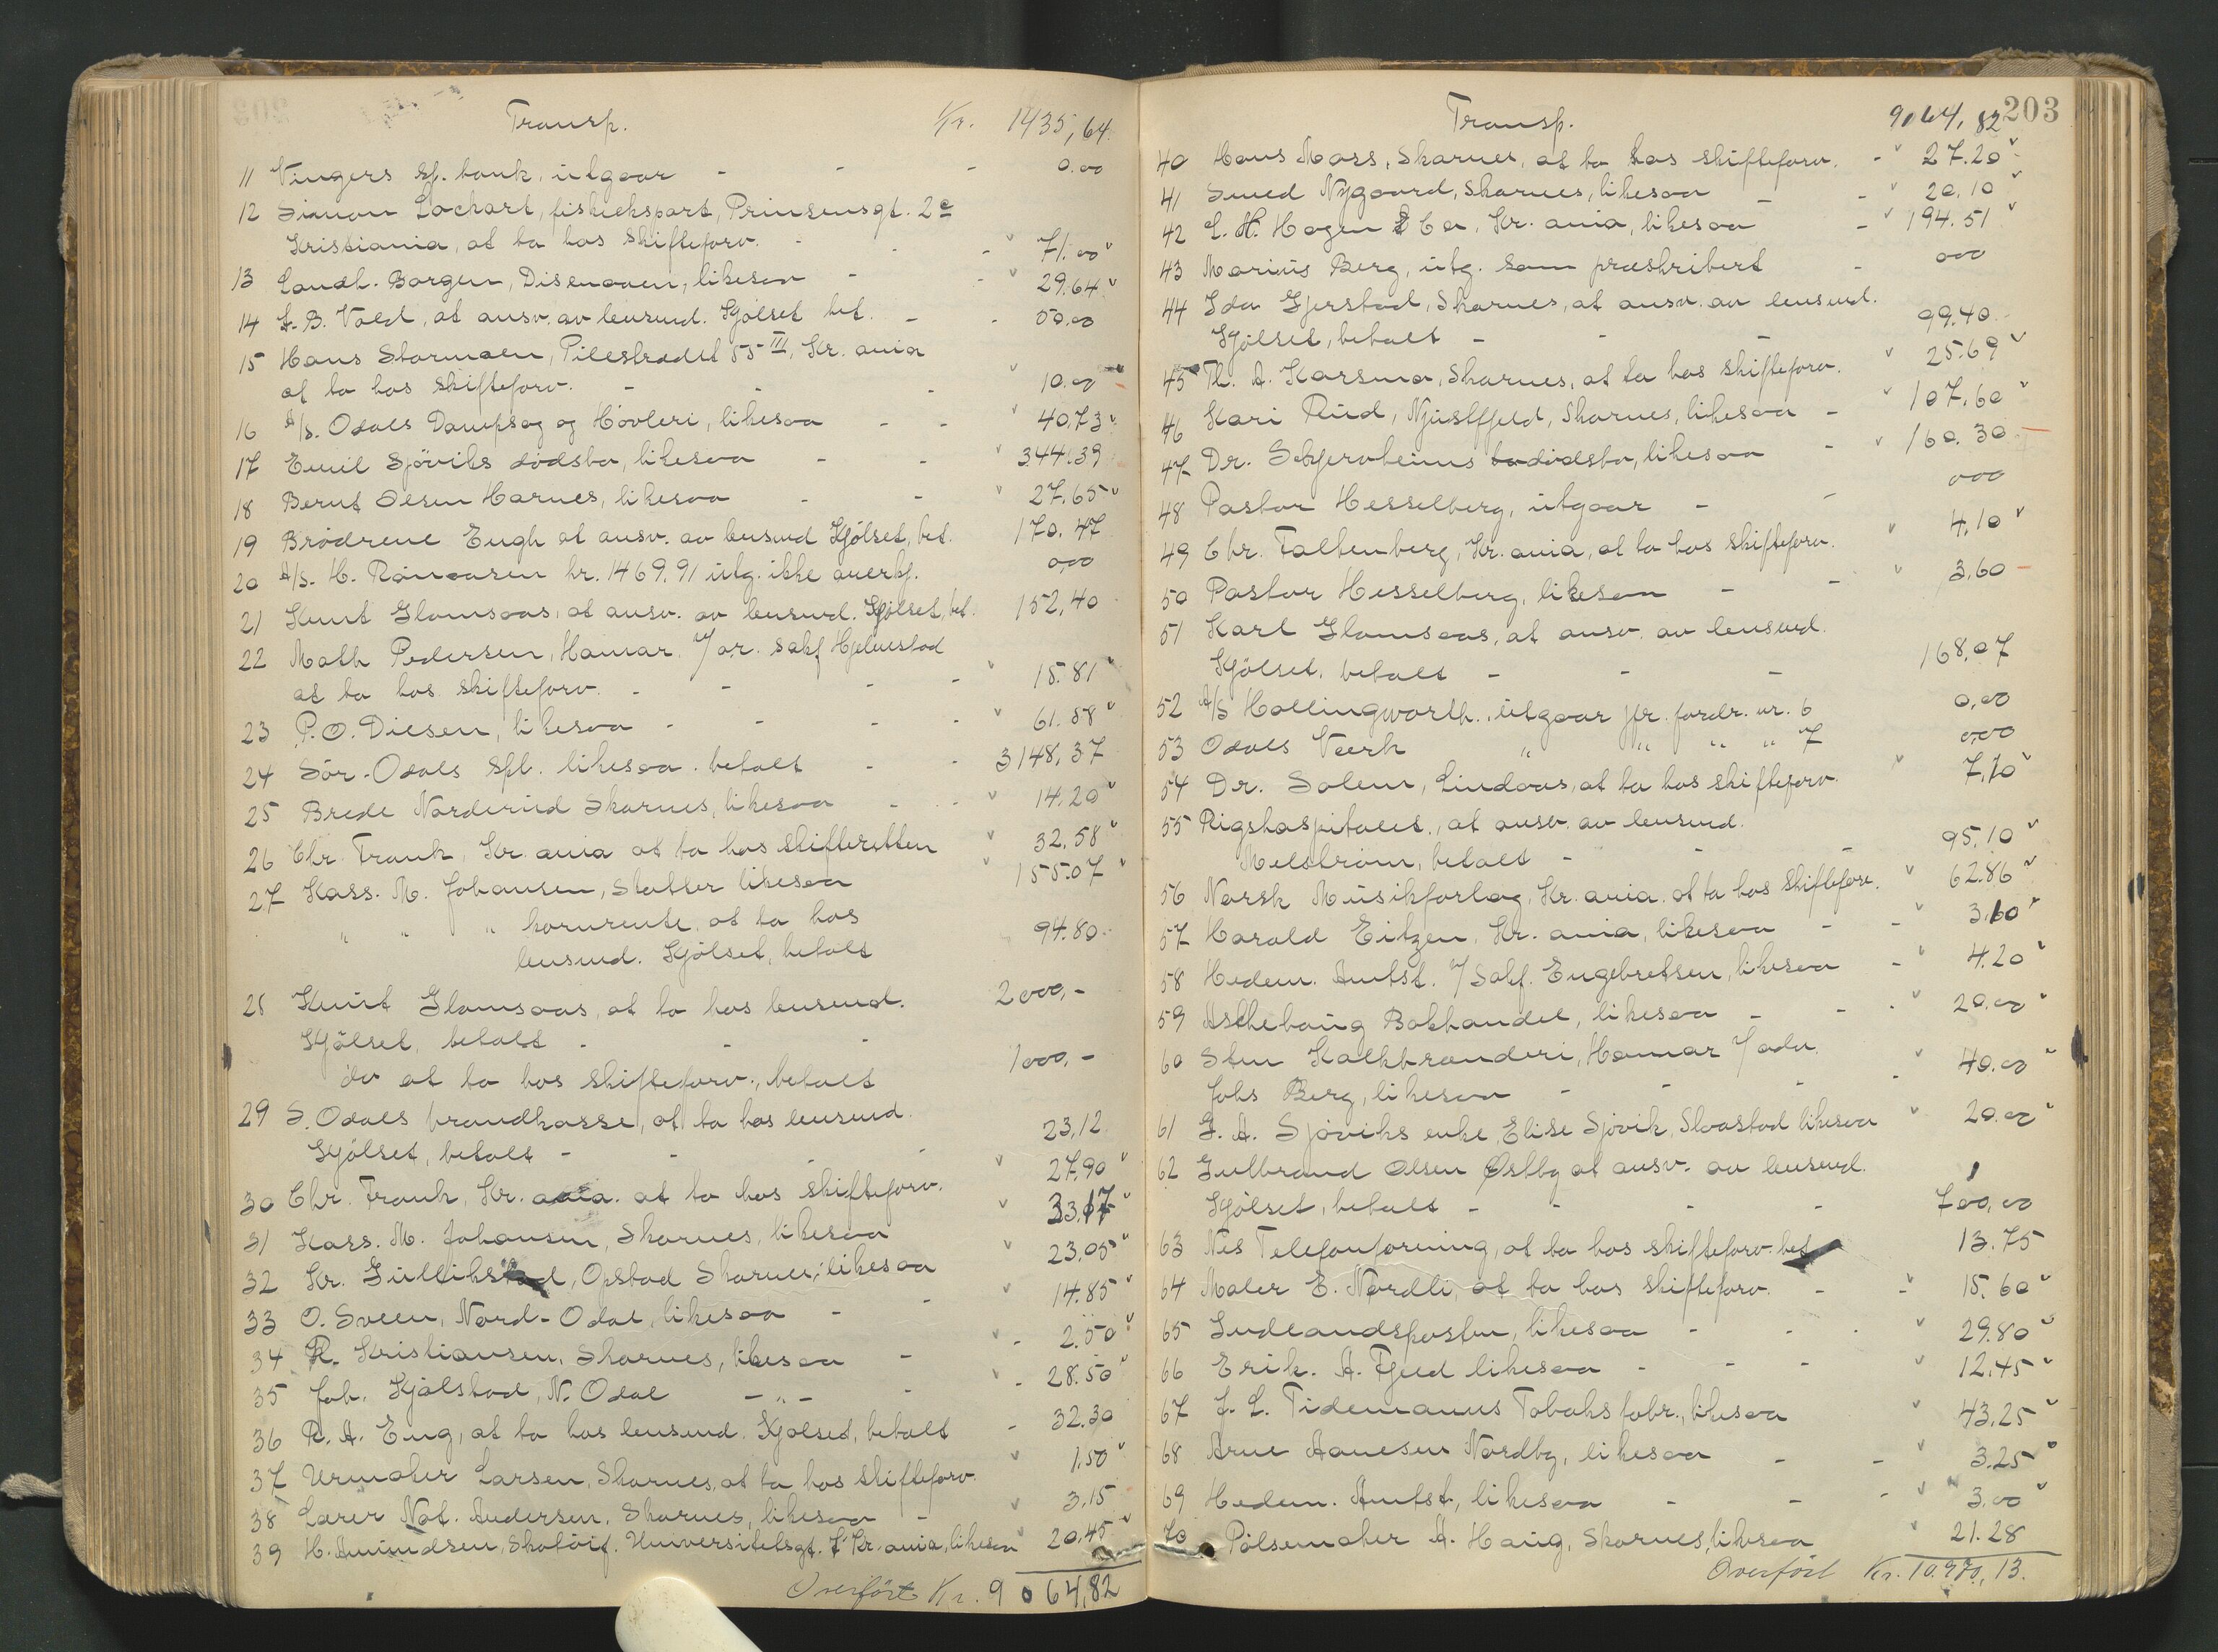 Transp. Kr. 1435,64.
11 Vingers sp. bank, utgaar - - - 0.00
12 Simon Lochart, fiskeekspart, Prinsensgt. 2c
Kristiania, at ta hos skifteforv. - - - 71.00
13 Landh. Borgen, Disenaaen, likesaa - - 29.64
14 A. B. Vold, at ansv. av lensmd. Kjölset bet. - - 50.00
15 Hans Stormoen, Pilestrædet 55 III, Kr.ania
at ta hos skifteforv. - - - 10.00
16 A/s. Odals Dampsag og Hövleri, likesaa - - 40.73
17 Emil Sjöviks dödsbo, likesaa - - 344.39
18 Bernt Olsen Harnes, likesaa - - 27.65
19 Brödrene Engh at ansv. av lensmd Kjölset, bet. 170.47
20 A/s. H. kr. 1469.91 utg. ikke anerkj. 0,00
21 Knut Glomsaas, at ansv. av lensmd. Kjölset, bet. 152,40
22 Math Pedersen, Hamar. v/ o.r. sakf Hjelmstad
at ta hos skifteforv. - - - - 15.81
23 P. O. Diesen, likesaa - - - - 61.58
24 Sör-Odals spb. likesaa. betalt - - 3148,37
25 Brede Norderud Skarnes, likesaa - - 14.20
26 Chr. Frank, Kr.ania at ta hos skifteretten 32,58
27 Kass. M. Johansen, Slaatter likesaa 155.07
" " " kornrente, at ta hos
lensmd. Kjölset, betalt 94.80
28 Knut Glomsaas, at ta hos lensmd.
Kjölset, betalt - - - 2000,-
do at ta hos skifteforv., betalt 1000,-
29 S. Odals brandkasse, at ta hos lensmd.
Kjölset, betalt - - - - 23,12
30 Chr. Frank, Kr.ania. at ta hos skifteforv. 27.90
31 Kass. M. Johansen, Skarnes, likesaa 33,17
32 Kr. Gulliksrud, Opstad Skarnes, likesaa 23.05
33 O. Sveen, Nord-Odal, likesaa - - 14.85
34 R. Kristiansen, Skarnes, likesaa - - 2.50
35 Joh. Kjölstad, N. Odal -"- - - 28.50
36 R. A. Eng, at ta hos lensmd. Kjölset, betalt - 32.30
37 Urmaker Larsen, Skarnes, at ta hos skifteforv. 1,50
38 Lærer Nat. Andersen, Skarnes, likesaa - 3.15
39 H. Amundsen, Skotöif. Universitetsgt. Kr.ania, likesaa 20,45
Overfört Kr. 9064,82
203
Transp. 9064,82
40 Hans Moss, Skarnes, at ta hos skifteforv. - 27.20
41 Smed Nygaard, Skarnes, likesaa - - 20.10
42 L. H. Hagen & Co, Kr.ania, likesaa - 194.51
43 Marius Berg, utg. som præskribert - 000
44 Ida Gjerstad, Skarnes, at ansv. av lensmd.
Kjölset, betalt - - - 99.40
45 Th. A. Karsmo, Skarnes, at ta hos skifteforv. 25.69
46 Kari Rud, Skarnes, likesaa - 107,60
47 Dr. Schjervheims dödsbo, likesaa - 160.30
48 Pastor Hesselberg, utgaar - - 000
49 Chr. Faltenberg, Kr.ania, at ta hos skifteforv. 4,10
50 Pastor Hesselberg, likesaa - - 3,60
51 Karl Glomsaas, at ansv. av lensmd.
Kjölset, betalt - - - 168,07
52 A/s Hollingworth., utgaar jfr. fordr. nr. 6 0,00
53 Odals Verk " " " " 7 0,00
54 Dr. Solem, Lindaas, at ta hos skifteforv. 7,10
55 Rigshospitalet, at ansv. av lensmd.
Melström, betalt - - - 95,10
56 Norsk Musikforlag, Kr.ania. at ta hos skifteforv. 62.86
57 Harald Eitzen, Kr.ania, likesaa - - 3,60
58 Hedem. Amtst. v/ Sakf. Engebretsen, likesaa - 4.20
59 Aschehoug Bokhandel, likesaa - - - 20.00
60 Sten Kalkbrænderi, Hamar v/ adv.
Johs Berg, likesaa - - - - 40.00
61 G. A. Sjöviks enke, Elise Sjövik, Slaastad likesaa 20.00
62 Gulbrand Olsen Østby at ansv. av lensmd.
Kjölset, betalt - - - - 700,00
63 Nes Telefonforening, at ta hos skifteforv. bet 13.75
64 Maler E. Nordli, at ta hos skifteforv. - - 15.60
65 Indlandsposten, likesaa - - - 29.80
66 Erik. A. Fjeld likesaa - - - 12,45
67 J. L. Tidemanns Tobaksfabr., likesaa 43,25
68 Arne Aanesen Nordby, likesaa - - 3.25
69 Hedem. Amtst., likesaa - - - 3.00
70 Pölsemaker A. Haug, Skarnes, likesaa 21.28
Overfört Kr. 10.970,13.